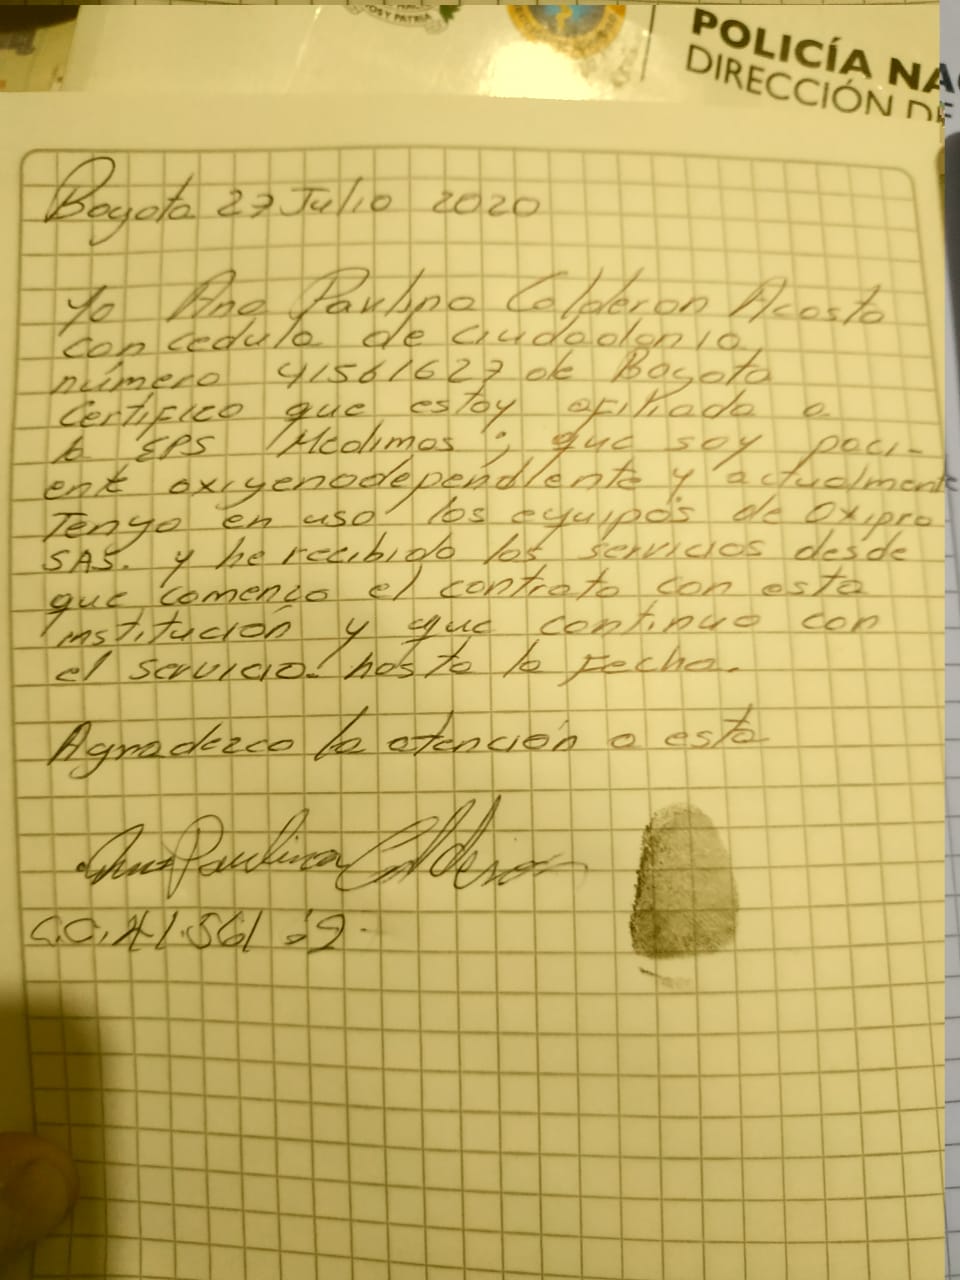 OS Y PATRIA
POLICÍA NA
DIRECCIÓN DE
Bogota 27 Julio 2020
Yo Ana Paulina Calderon Acosta
con cedula de ciudadania
número 41561627 de Bogota
Certifico que estoy afiliada a
la EPS Medimas; que soy paci-
ente oxigenodependiente y actualmente
Tengo en uso los equipos de Oxipro
SAS. y he recibido los servicios desde
que comenzo el contrato con esta
institución y que continuo con
el servicio. hasta la fecha.
Agradezco la atención a esta
Ana Paulina Calderon
C.C. 41.561